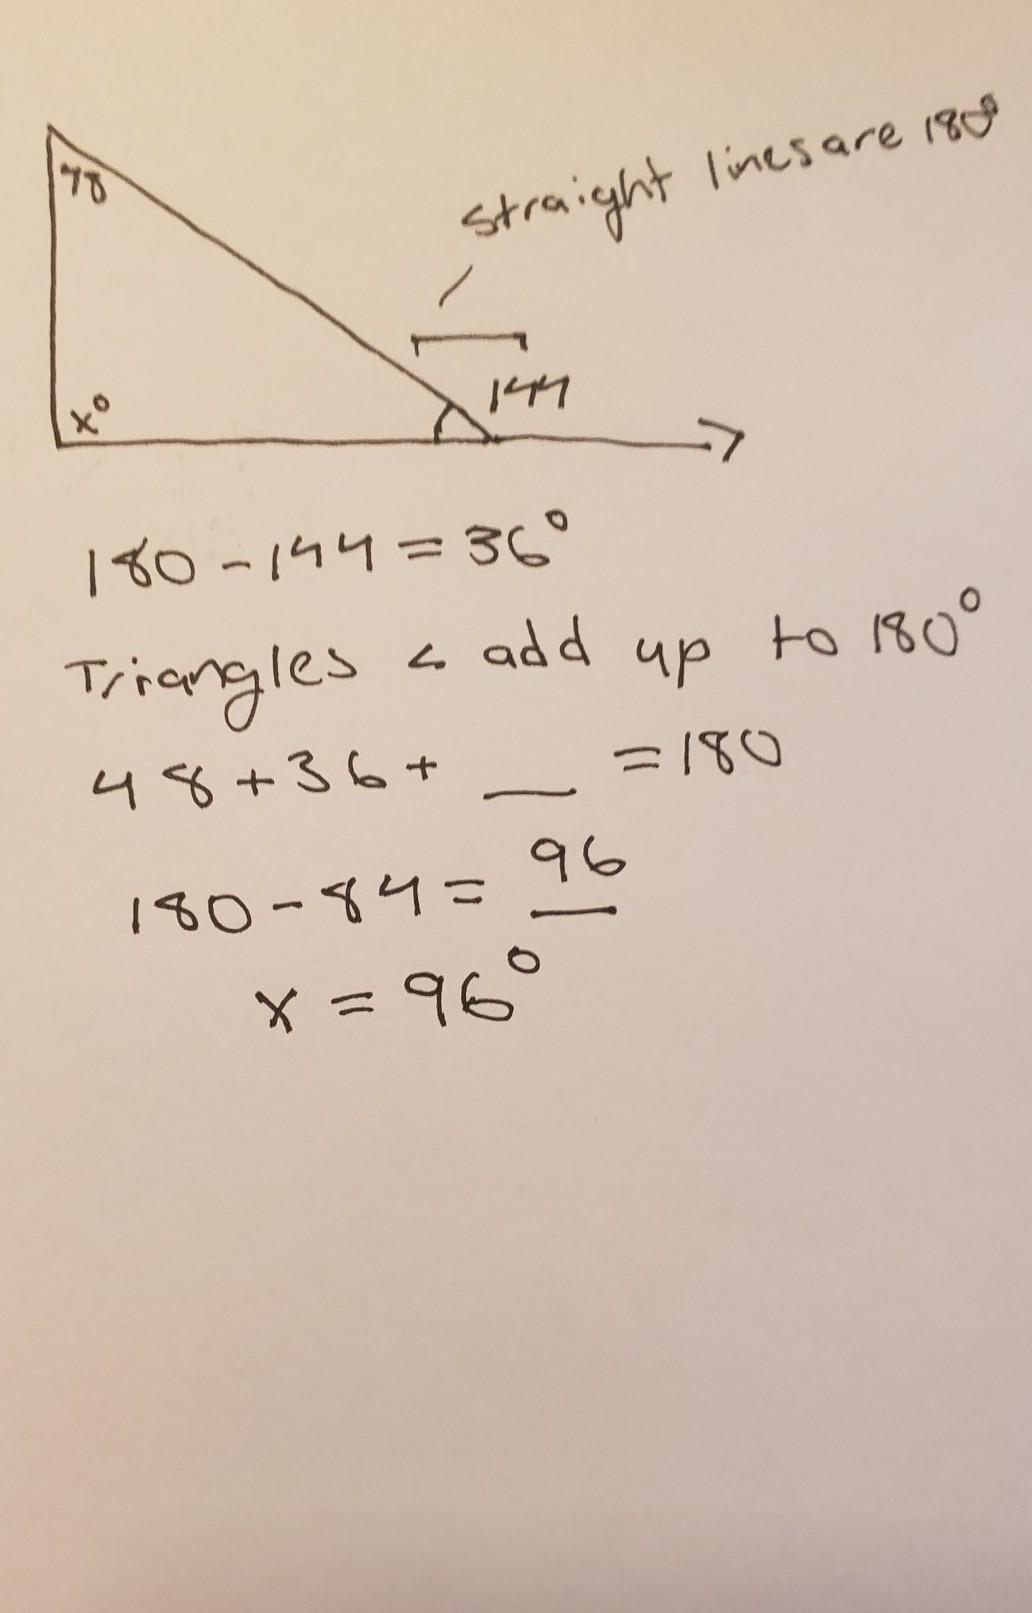 straight lines are 180°
48
144
x°
180-144=36°
Triangles < add up to 180°
48+36+ __ =180
180-84= 96
x = 96°